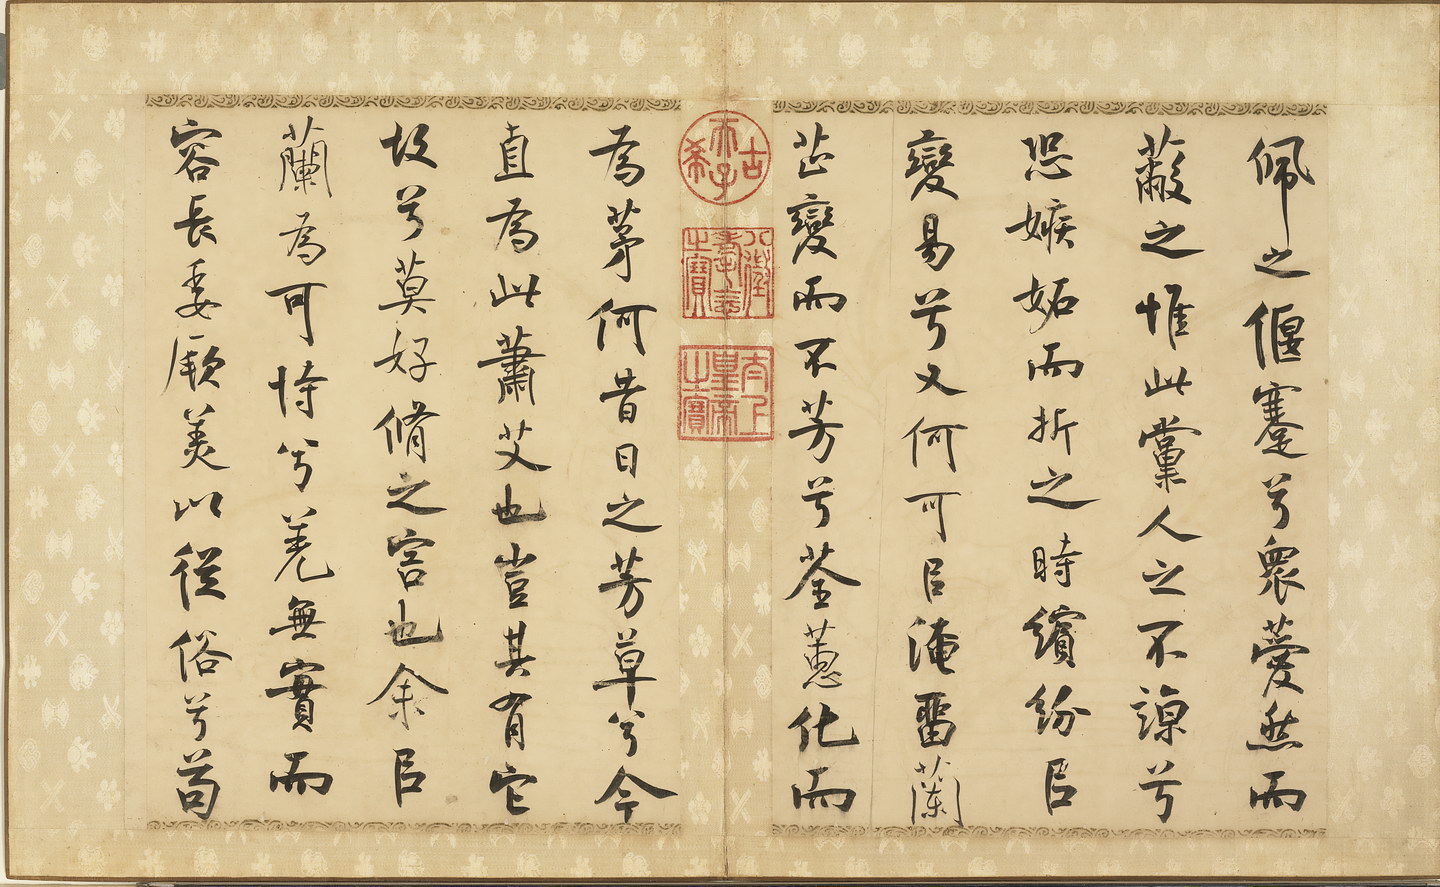 佩之偃蹇兮衆薆然而
蔽之惟此黨人之不諒兮
恐嫉妬而折之時繽紛㠯
變易兮又何可㠯淹留蘭
芷變而不芳兮荃蕙化而
古希天子
八徵耄念之寶
太上皇帝之寶
為茅何昔日之芳草兮今
直為此蕭艾也豈其有它
故兮莫好脩之害也余㠯
蘭為可恃兮羌無實而
容長委厥美以從俗兮苟